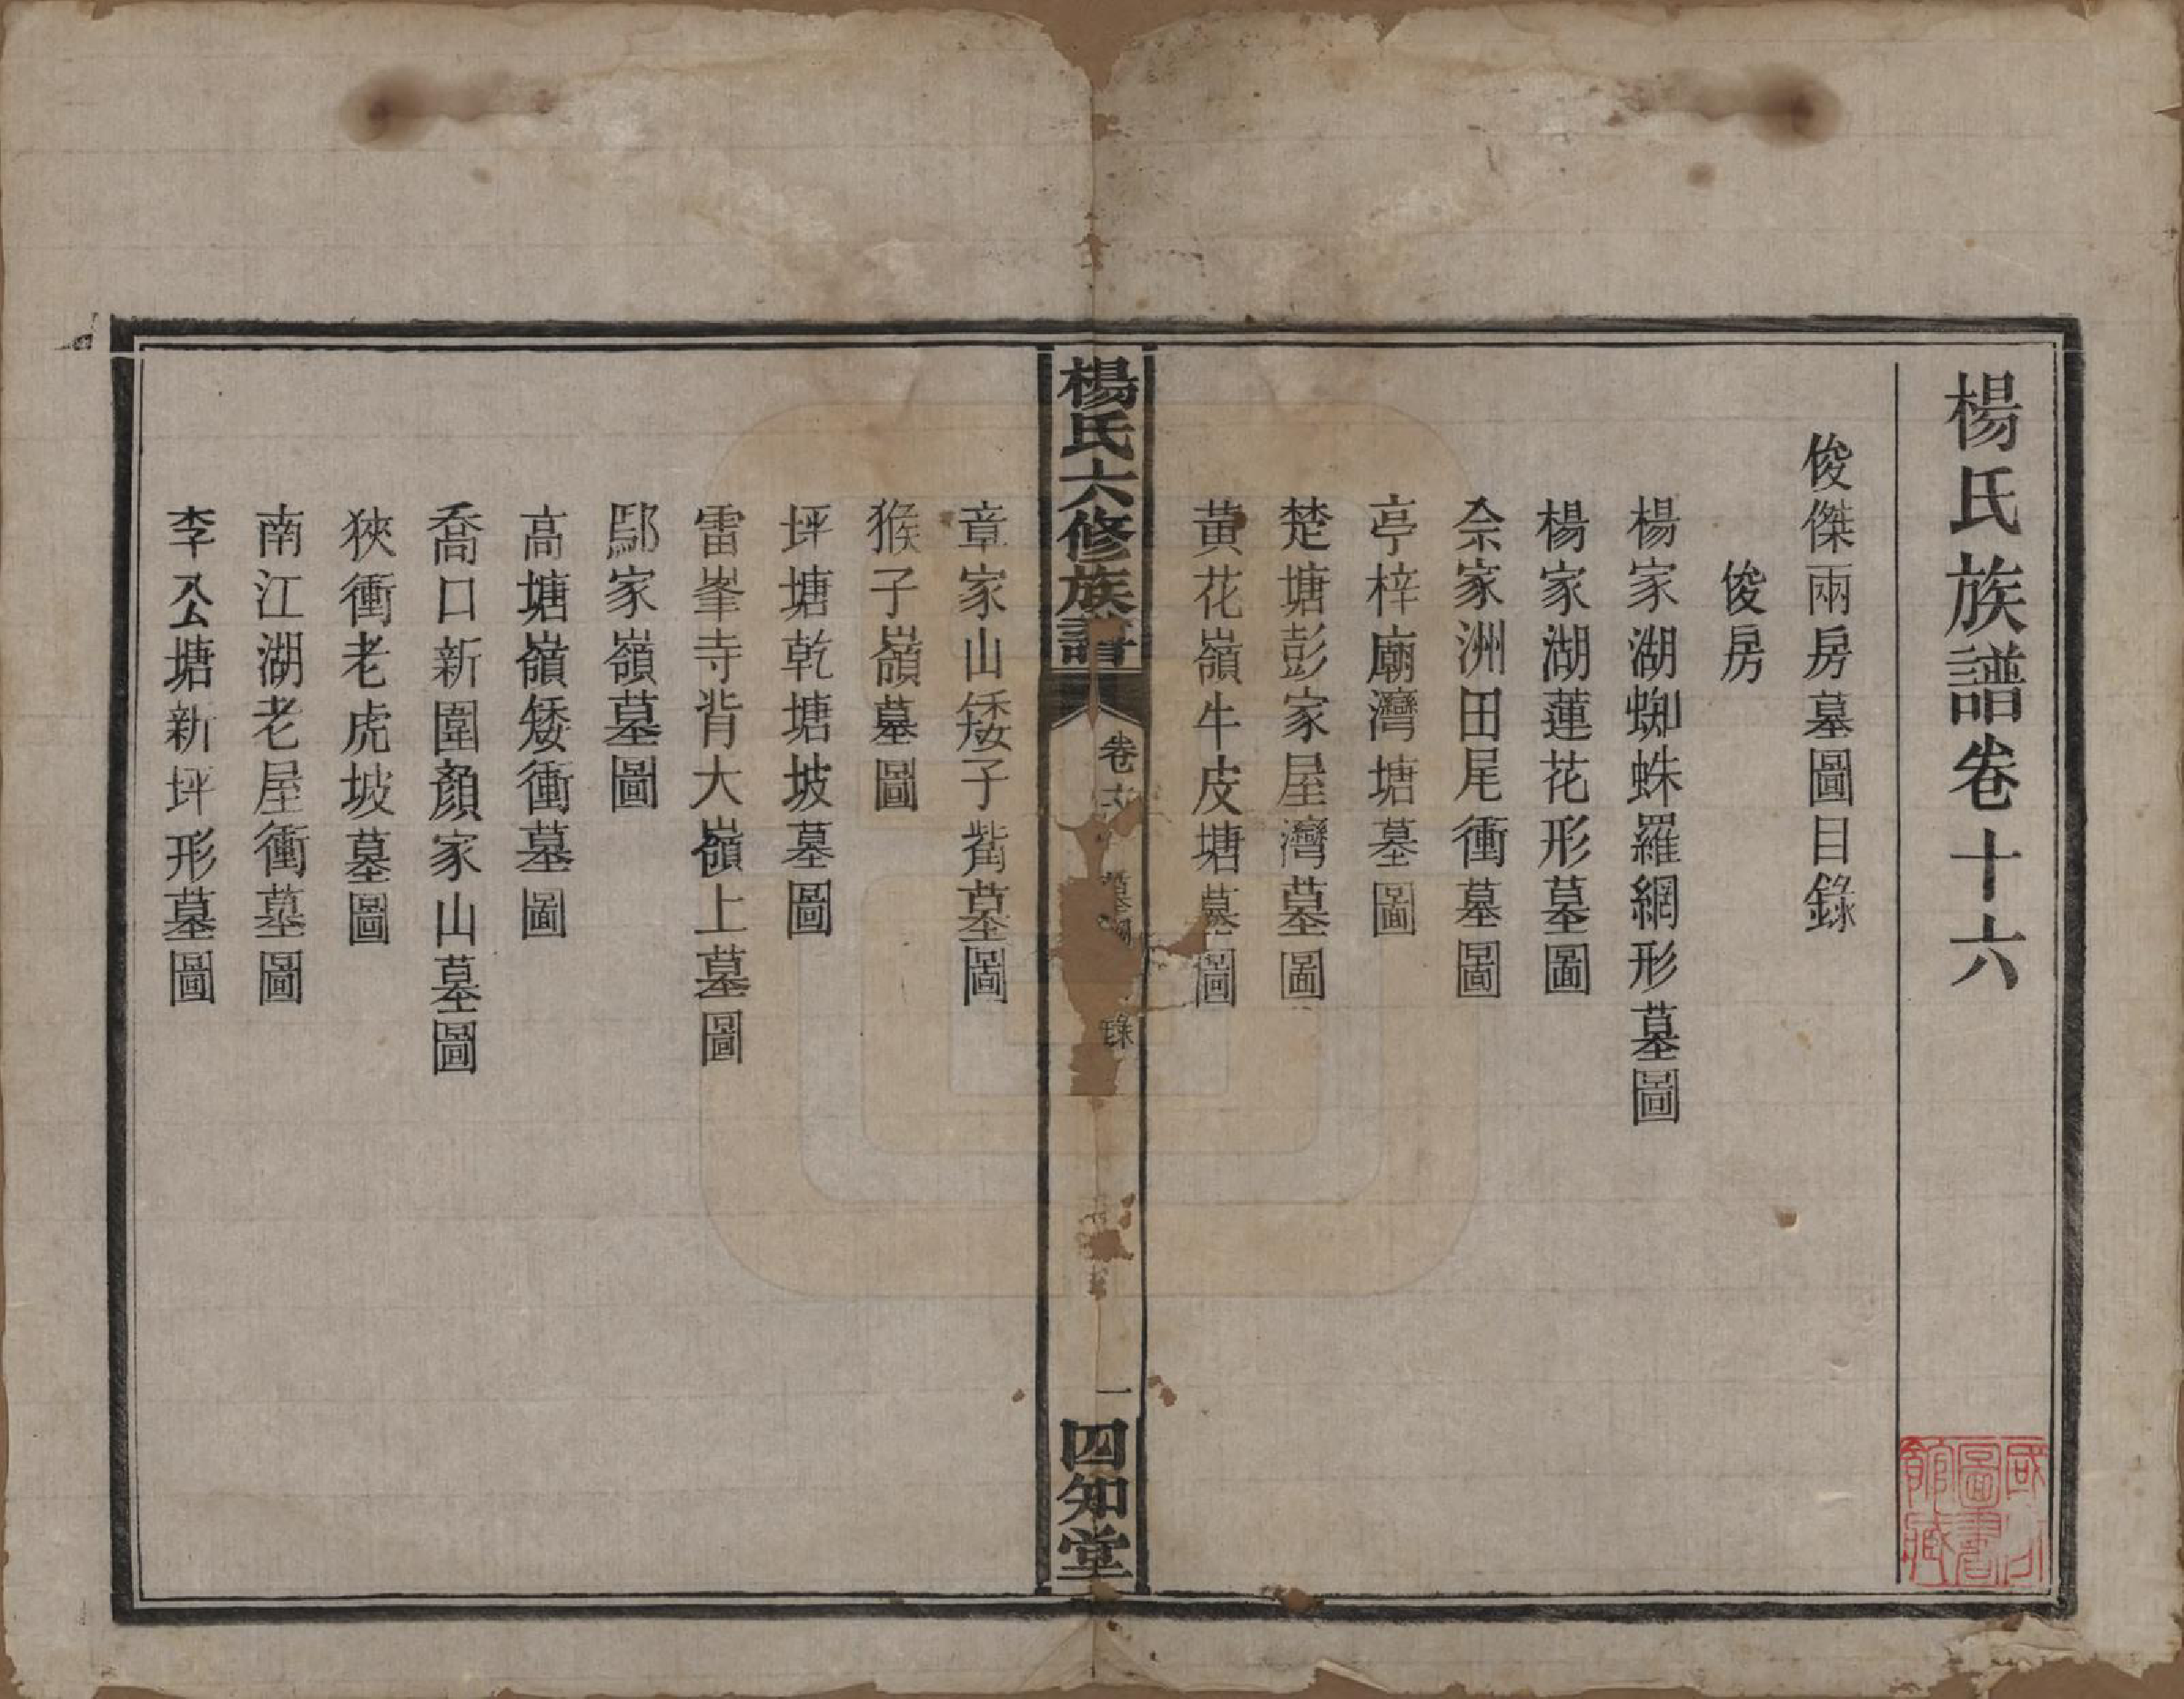 楊氏族譜卷十六
俊傑兩房墓圖目錄
俊房
楊家湖蜘蛛羅網形墓圖
楊家湖蓮花形墓圖
佘家洲田尾衝墓圖
亭梓廟灣塘墓圖
楚塘彭家屋灣墓圖
黃花嶺牛皮塘墓圖
楊氏六修族譜
卷十六 墓圖目錄
一
四知堂
章家山矮子觜墓圖
猴子嶺墓圖
坪塘乾塘坡墓圖
雷峯寺背大嶺上墓圖
鄢家嶺墓圖
高塘嶺矮衝墓圖
喬口新圍顏家山墓圖
狹衝老虎坡墓圖
南江湖老屋衝墓圖
李公塘新坪形墓圖
國
圖書
館藏